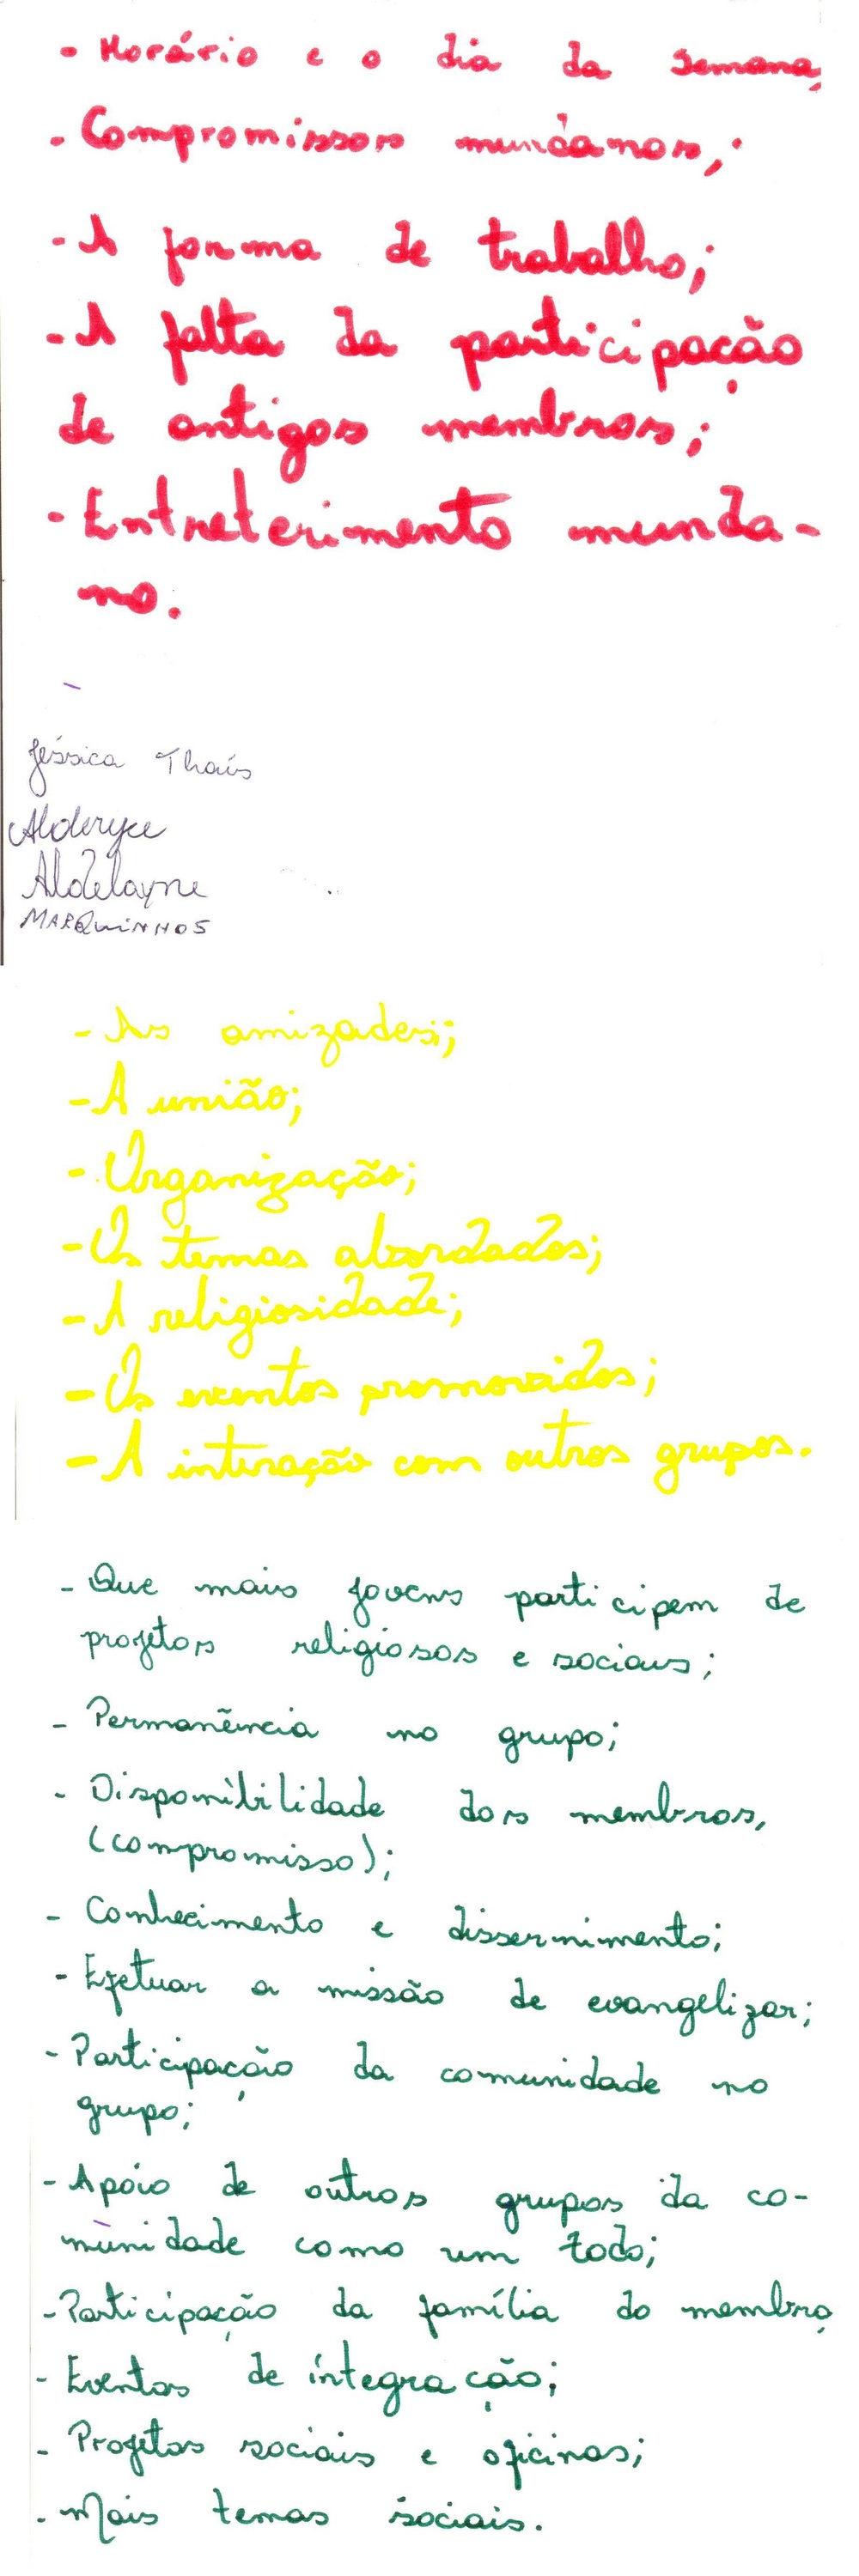 - Horário e o dia da semana;
- Compromissos mundanos;
- A forma de trabalho;
- A falta da participação
de antigos membros;
- Entreterimento munda-
no.
Jéssica Thaís
Alderyce
Aldelayne
MARQUINHOS
- As amizades;
- A união;
- Organização;
- Os temas abordados;
- A religiosidade;
- Os eventos promovidos;
- A interação com outros grupos.
- Que mais jovens participem de
projetos religiosos e sociaus;
- Permanência no grupo;
- Disponibilidade dos membros,
(compromisso);
- Conhecimento e dissernimento;
- Efetuar a missão de evangelizar;
- Participação da comunidade no
grupo;
- Apoio de outros grupos da co-
munidade como um todo;
- Participação da família do membro,
- Eventos de integração;
- Projetos sociais e oficinas;
- Mais temas sociais.